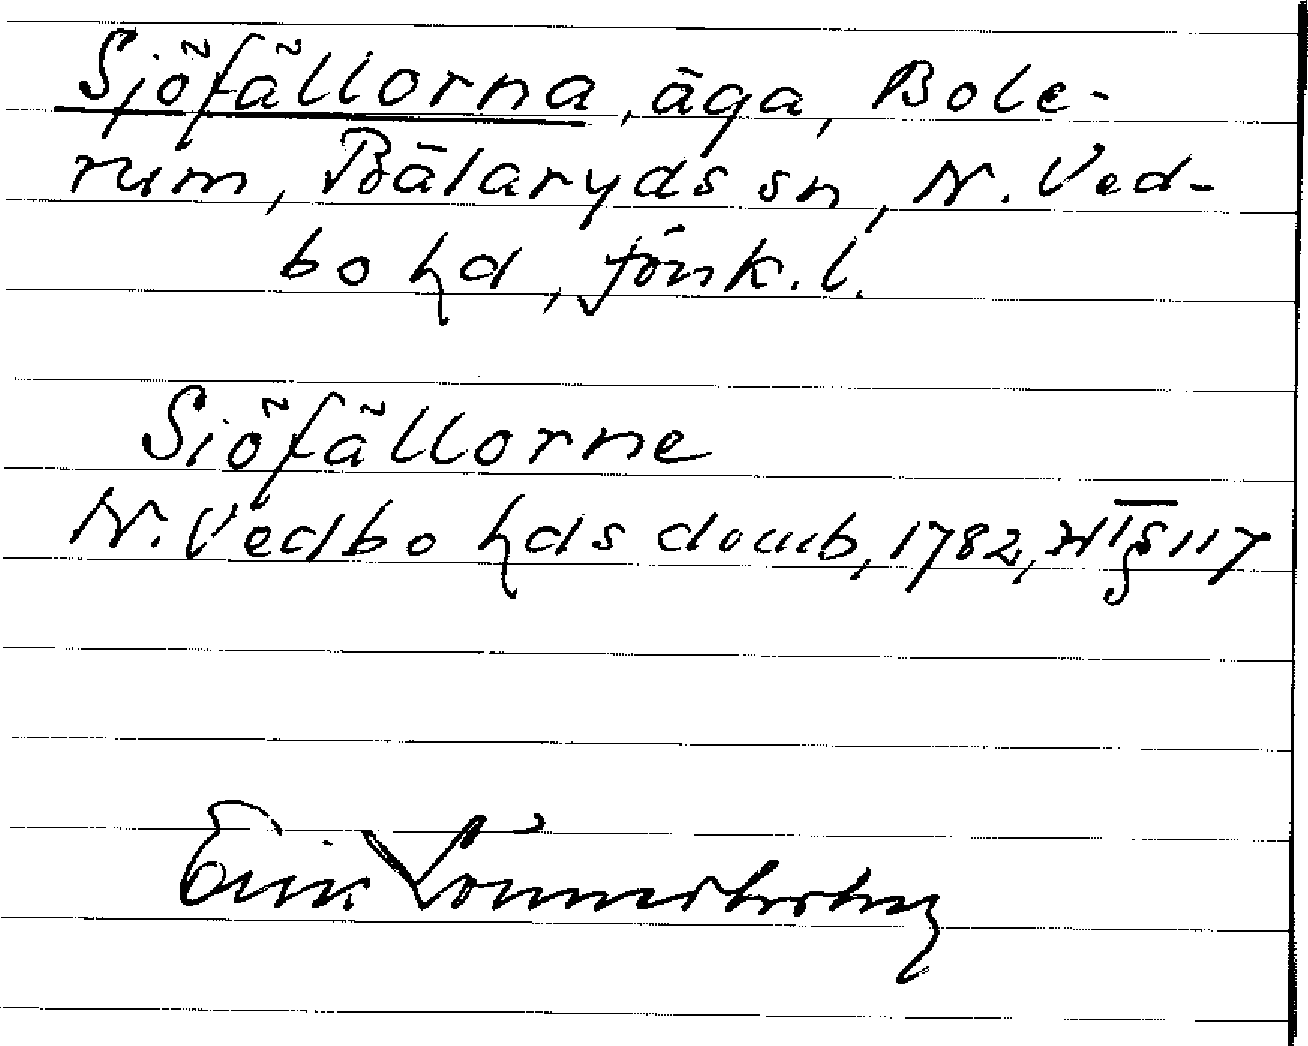 Sjöfällorna, äga, Bole-
rum, Bälaryds sn, N. Ved-
bo hd, Jönk. l.
Siöfällorne
N. Vedbo hds domb, 1782, HT § 117
Erik